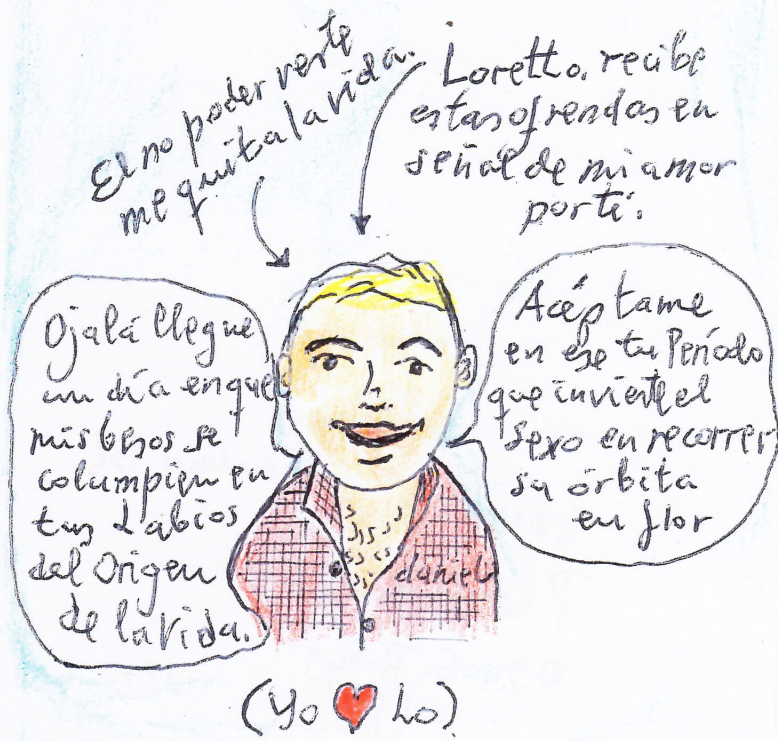 El no poder verte
me quita la vida.
Loretto, recibe
estas ofrendas en
señal de mi amor
por ti.
Ojalá llegue
un día en que
mis besos se
columpien en
tus Labios
del Origen
de la vida.
Acéptame
en ese tu Periodo
que invierte el
sexo en recorrer
su órbita
en flor
daniel
(Yo ❤ Lo)